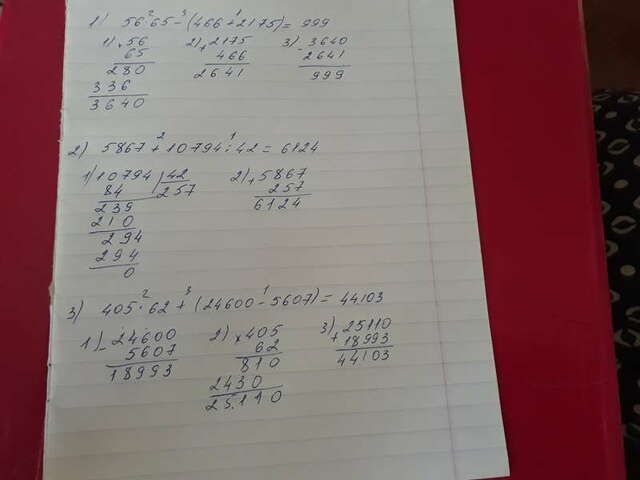 1) 56·65-(466+2175)=999
1) ×56 2) +2175 3) -3640
65 466 2641
280 2641 999
336
3640
2) 5867+10794:42=6124
1) 10794 | 42 2) +5867
84 257 257
239 6124
210
294
294
0
3) 405·62+(24600-5607)=44103
1) -24600 2) ×405 3) +25110
5607 62 18993
18993 810 44103
2430
25110